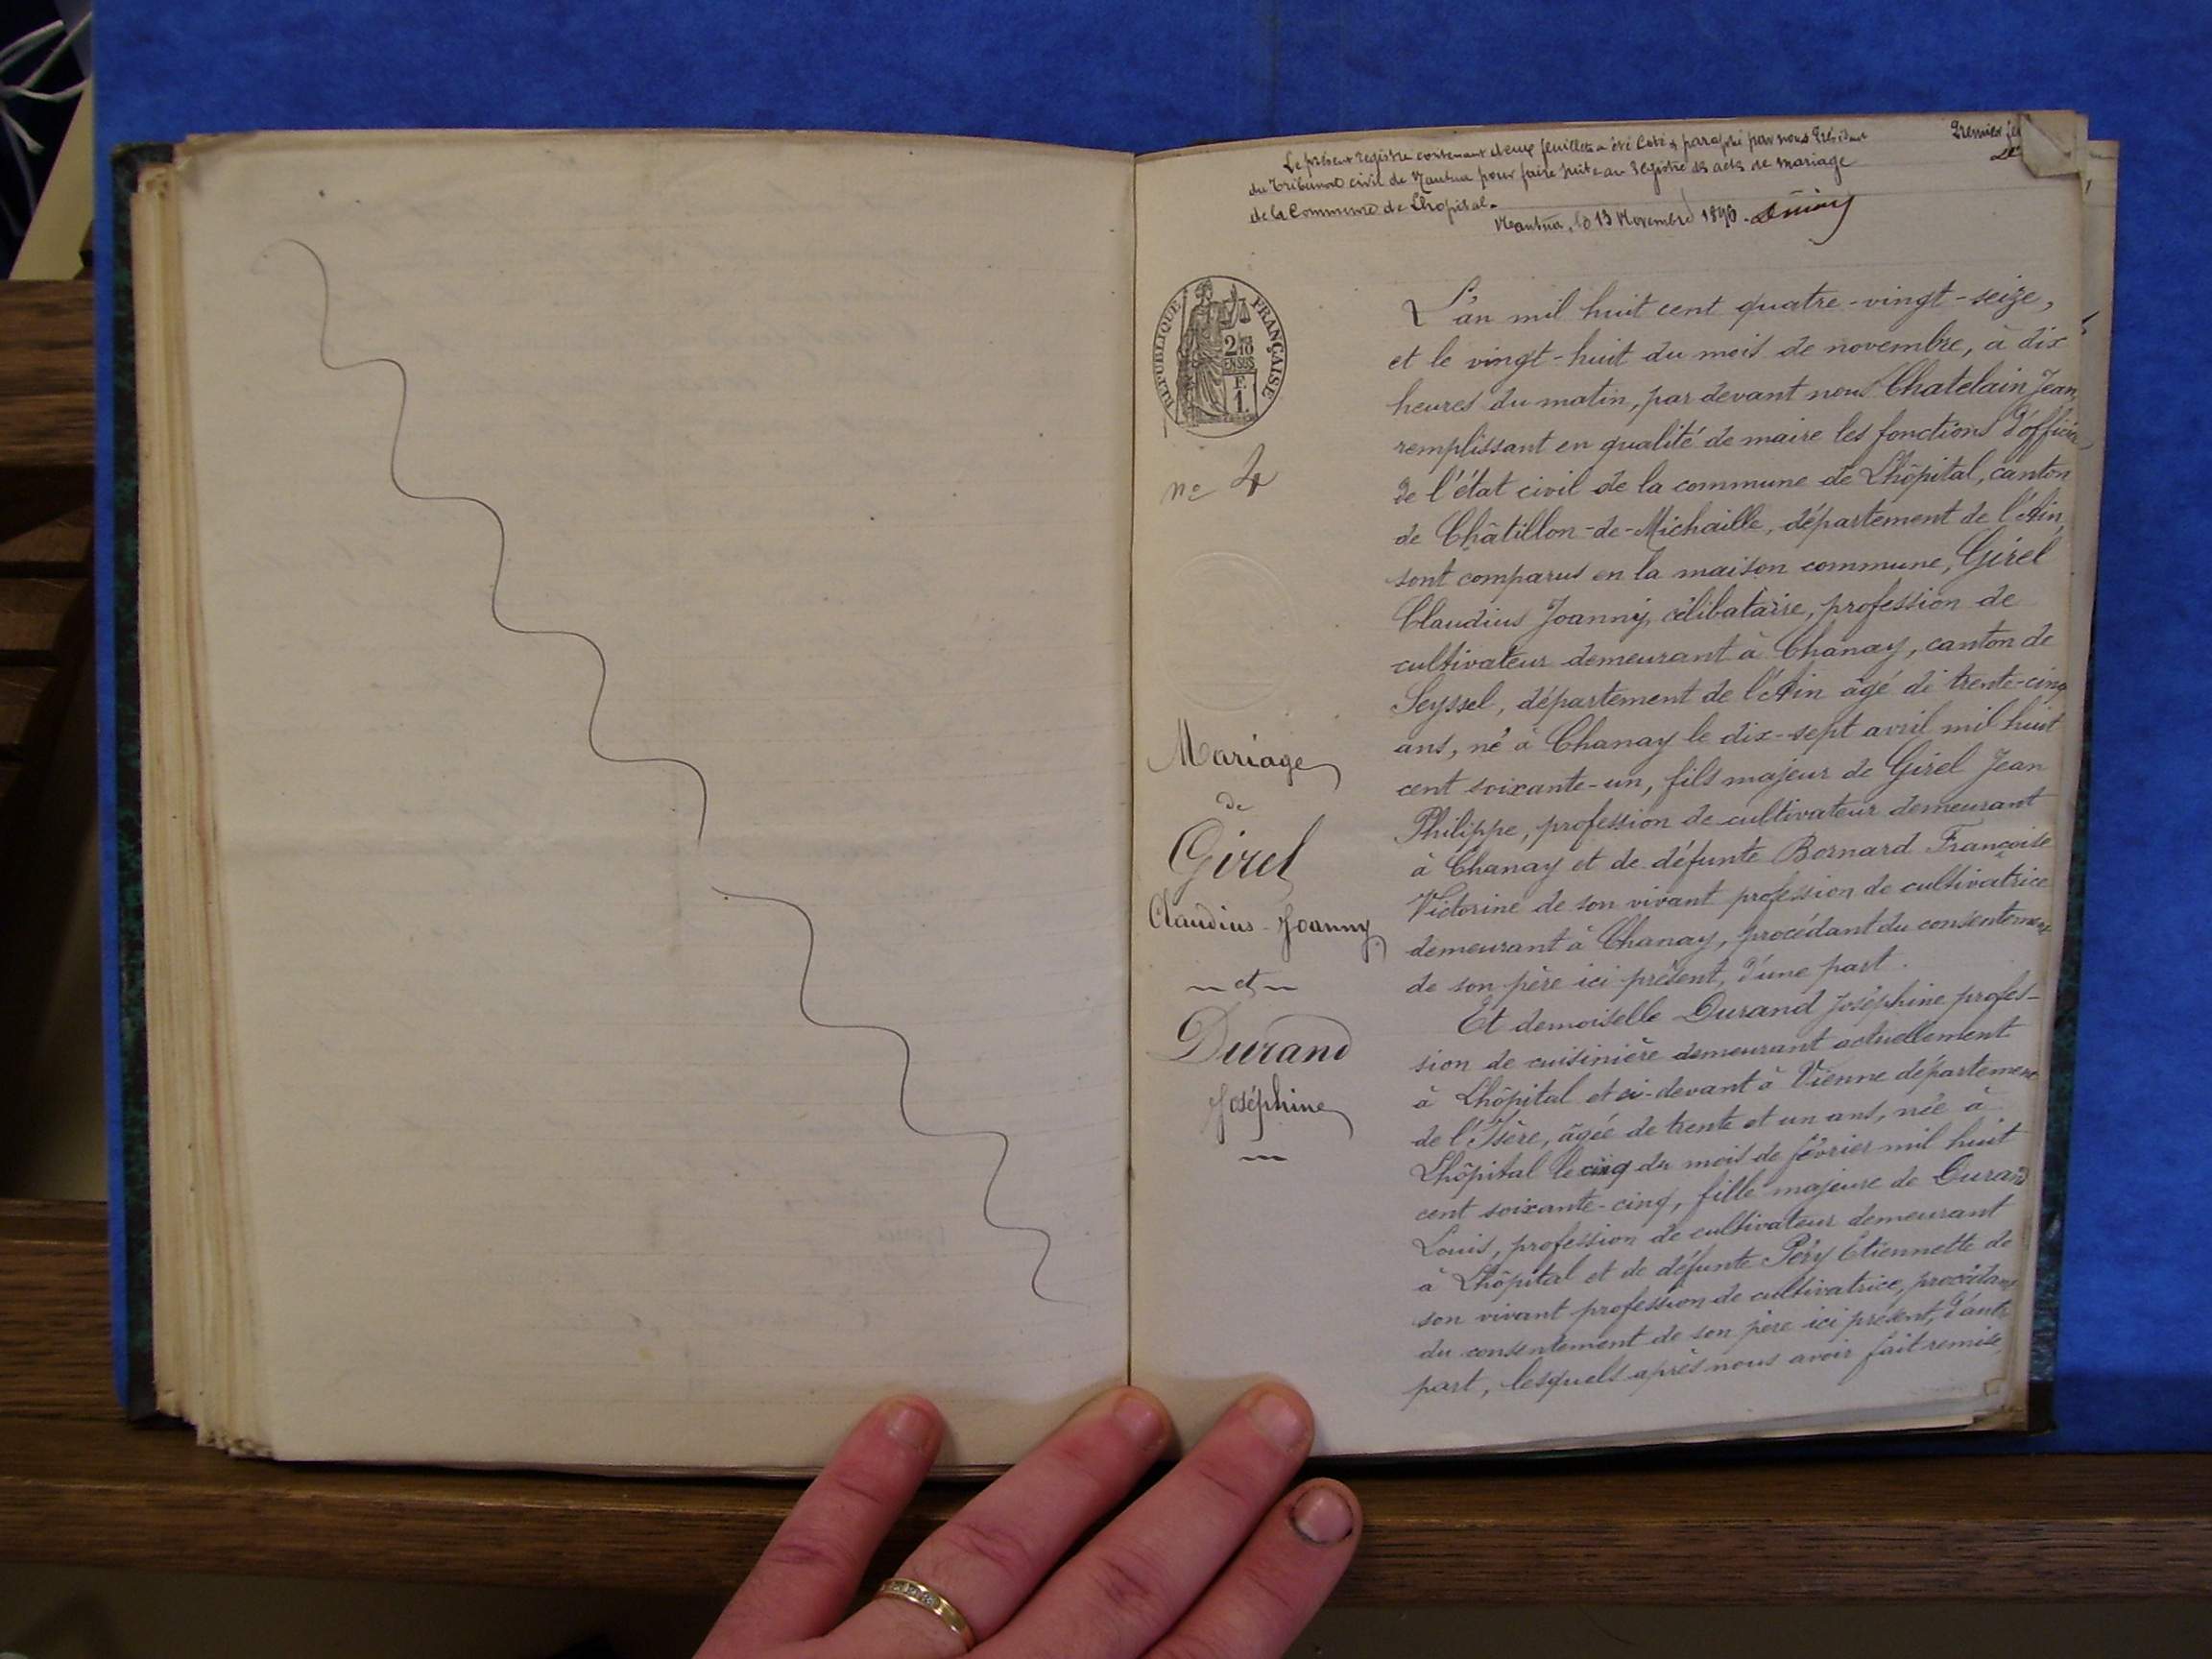 Le présent registre contenant deux feuillets a été coté & paraphé par nous Président
du Tribunal civil de Nantua pour faire suite au registre des actes de mariage
de la Commune de Lhopital.
Nantua, le 13 Novembre 1896.
Premier
RÉPUBLIQUE FRANÇAISE
2/10
EN SUS
F.
1.
nº 4
Mariage
de
Girel
Claudius-Joanny
et
Durand
Joséphine
L'an mil huit cent quatre-vingt-seize,
et le vingt-huit du mois de novembre, à dix
heures du matin, par devant nous Chatelain Jean,
remplissant en qualité de maire les fonctions d'officier
de l'état civil de la commune de Lhôpital, canton
de Châtillon-de-Michaille, département de l'Ain,
sont comparus en la maison commune, Girel
Claudius Joanny, célibataire, profession de
cultivateur demeurant à Chanay, canton de
Seyssel, département de l'Ain âgé de trente-cinq
ans, né à Chanay le dix-sept avril mil huit
cent soixante-un, fils majeur de Girel Jean
Philippe, profession de cultivateur demeurant
à Chanay et de défunte Bornard Françoise
Victorine de son vivant profession de cultivatrice
demeurant à Chanay, procédant du consentement
de son père ici présent, d'une part.
Et demoiselle Durand Joséphine profes-
sion de cuisinière demeurant actuellement
à Lhôpital et ci-devant à Vienne département
de l'Isère, âgée de trente et un ans, née à
Lhôpital le cinq du mois de février mil huit
cent soixante-cinq, fille majeure de Durand
Louis, profession de cultivateur demeurant
à Lhôpital et de défunte Péry Etiennette de
son vivant profession de cultivatrice, procédant
du consentement de son père ici présent, d'autre
part, lesquels après nous avoir fait remise